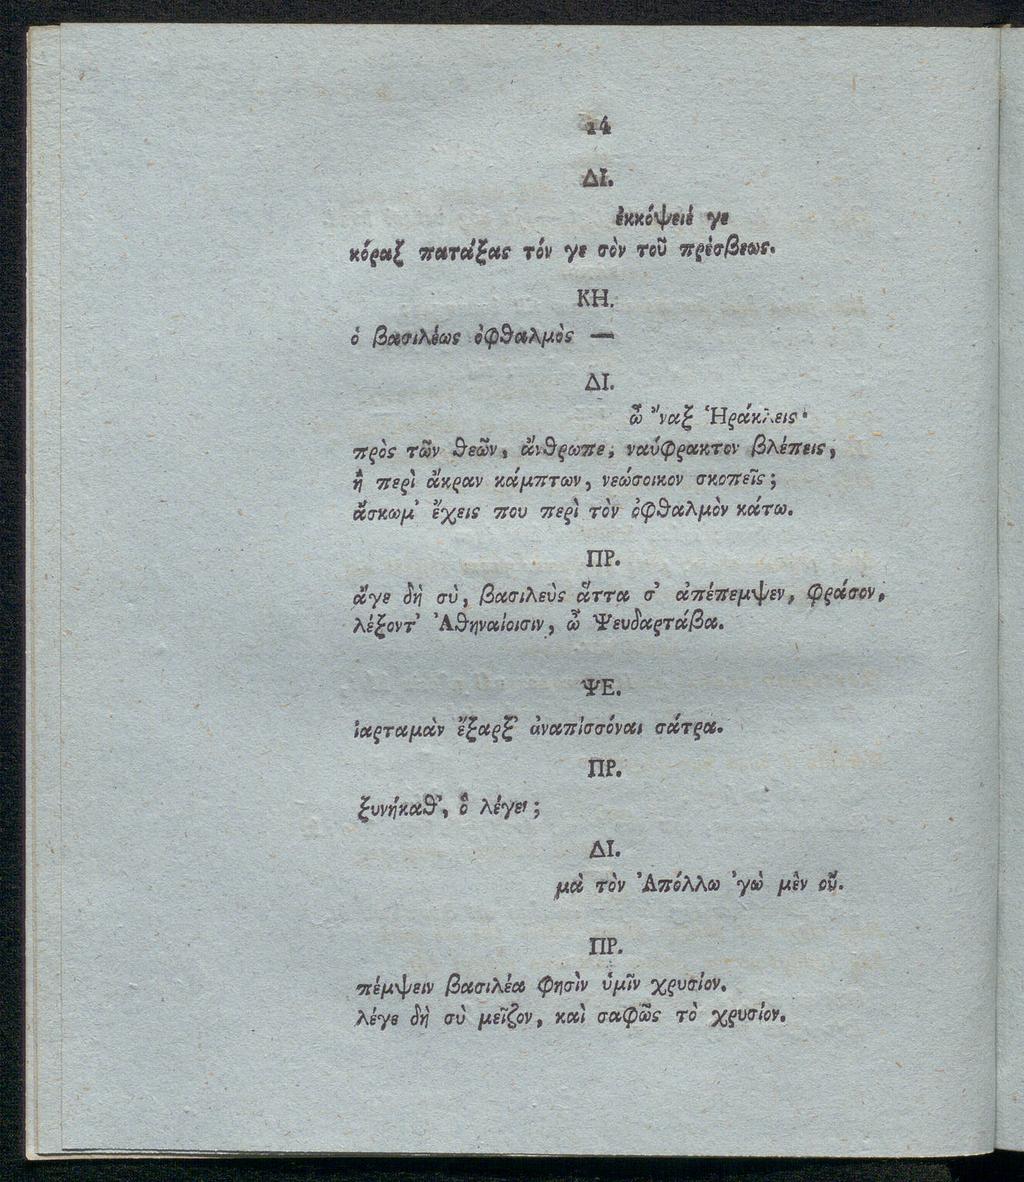 14
ΔΙ.
ἐκκόψειέ γε
κόραξ πατάξας τόν γε σὸν τοῦ πρέσβεως.
ΚΗ.
ὁ βασιλέως ὀφθαλμὸς —
ΔΙ.
ὦ ᾿ναξ Ἡράκλεις·
πρὸς τῶν θεῶν, ἄνθρωπε, ναύφρακτον βλέπεις,
ἢ περὶ ἄκραν κάμπτων, νεώσοικον σκοπεῖς;
ἄσκωμ᾿ ἔχεις που περὶ τὸν ὀφθαλμὸν κάτω.
ΠΡ.
ἄγε δὴ σὺ, βασιλεὺς ἅττα σ᾿ ἀπέπεμψεν, φράσον,
λέξοντ᾿ Ἀθηναίοισιν, ὦ Ψευδαρτάβα.
ΨΕ.
ἰαρταμὰν ἔξαρξ᾿ ἀναπισσόναι σάτρα.
ΠΡ.
ξυνήκαθ᾿, ὃ λέγει;
ΔΙ.
μὰ τὸν Ἀπόλλω ᾿γὼ μὲν οὔ.
ΠΡ.
πέμψειν βασιλέα φησὶν ὑμῖν χρυσίον.
λέγε δὴ σὺ μεῖζον, καὶ σαφῶς τὸ χρυσίον.